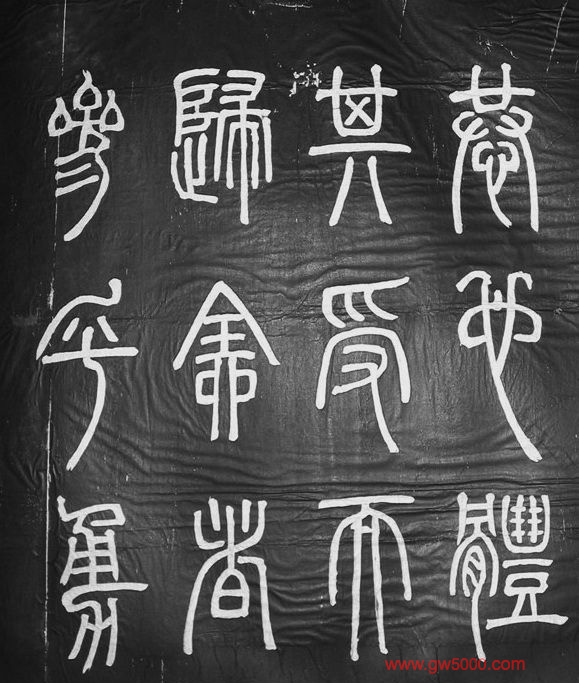 恭也體
其受而
歸全者
參乎勇
www.gw5000.com